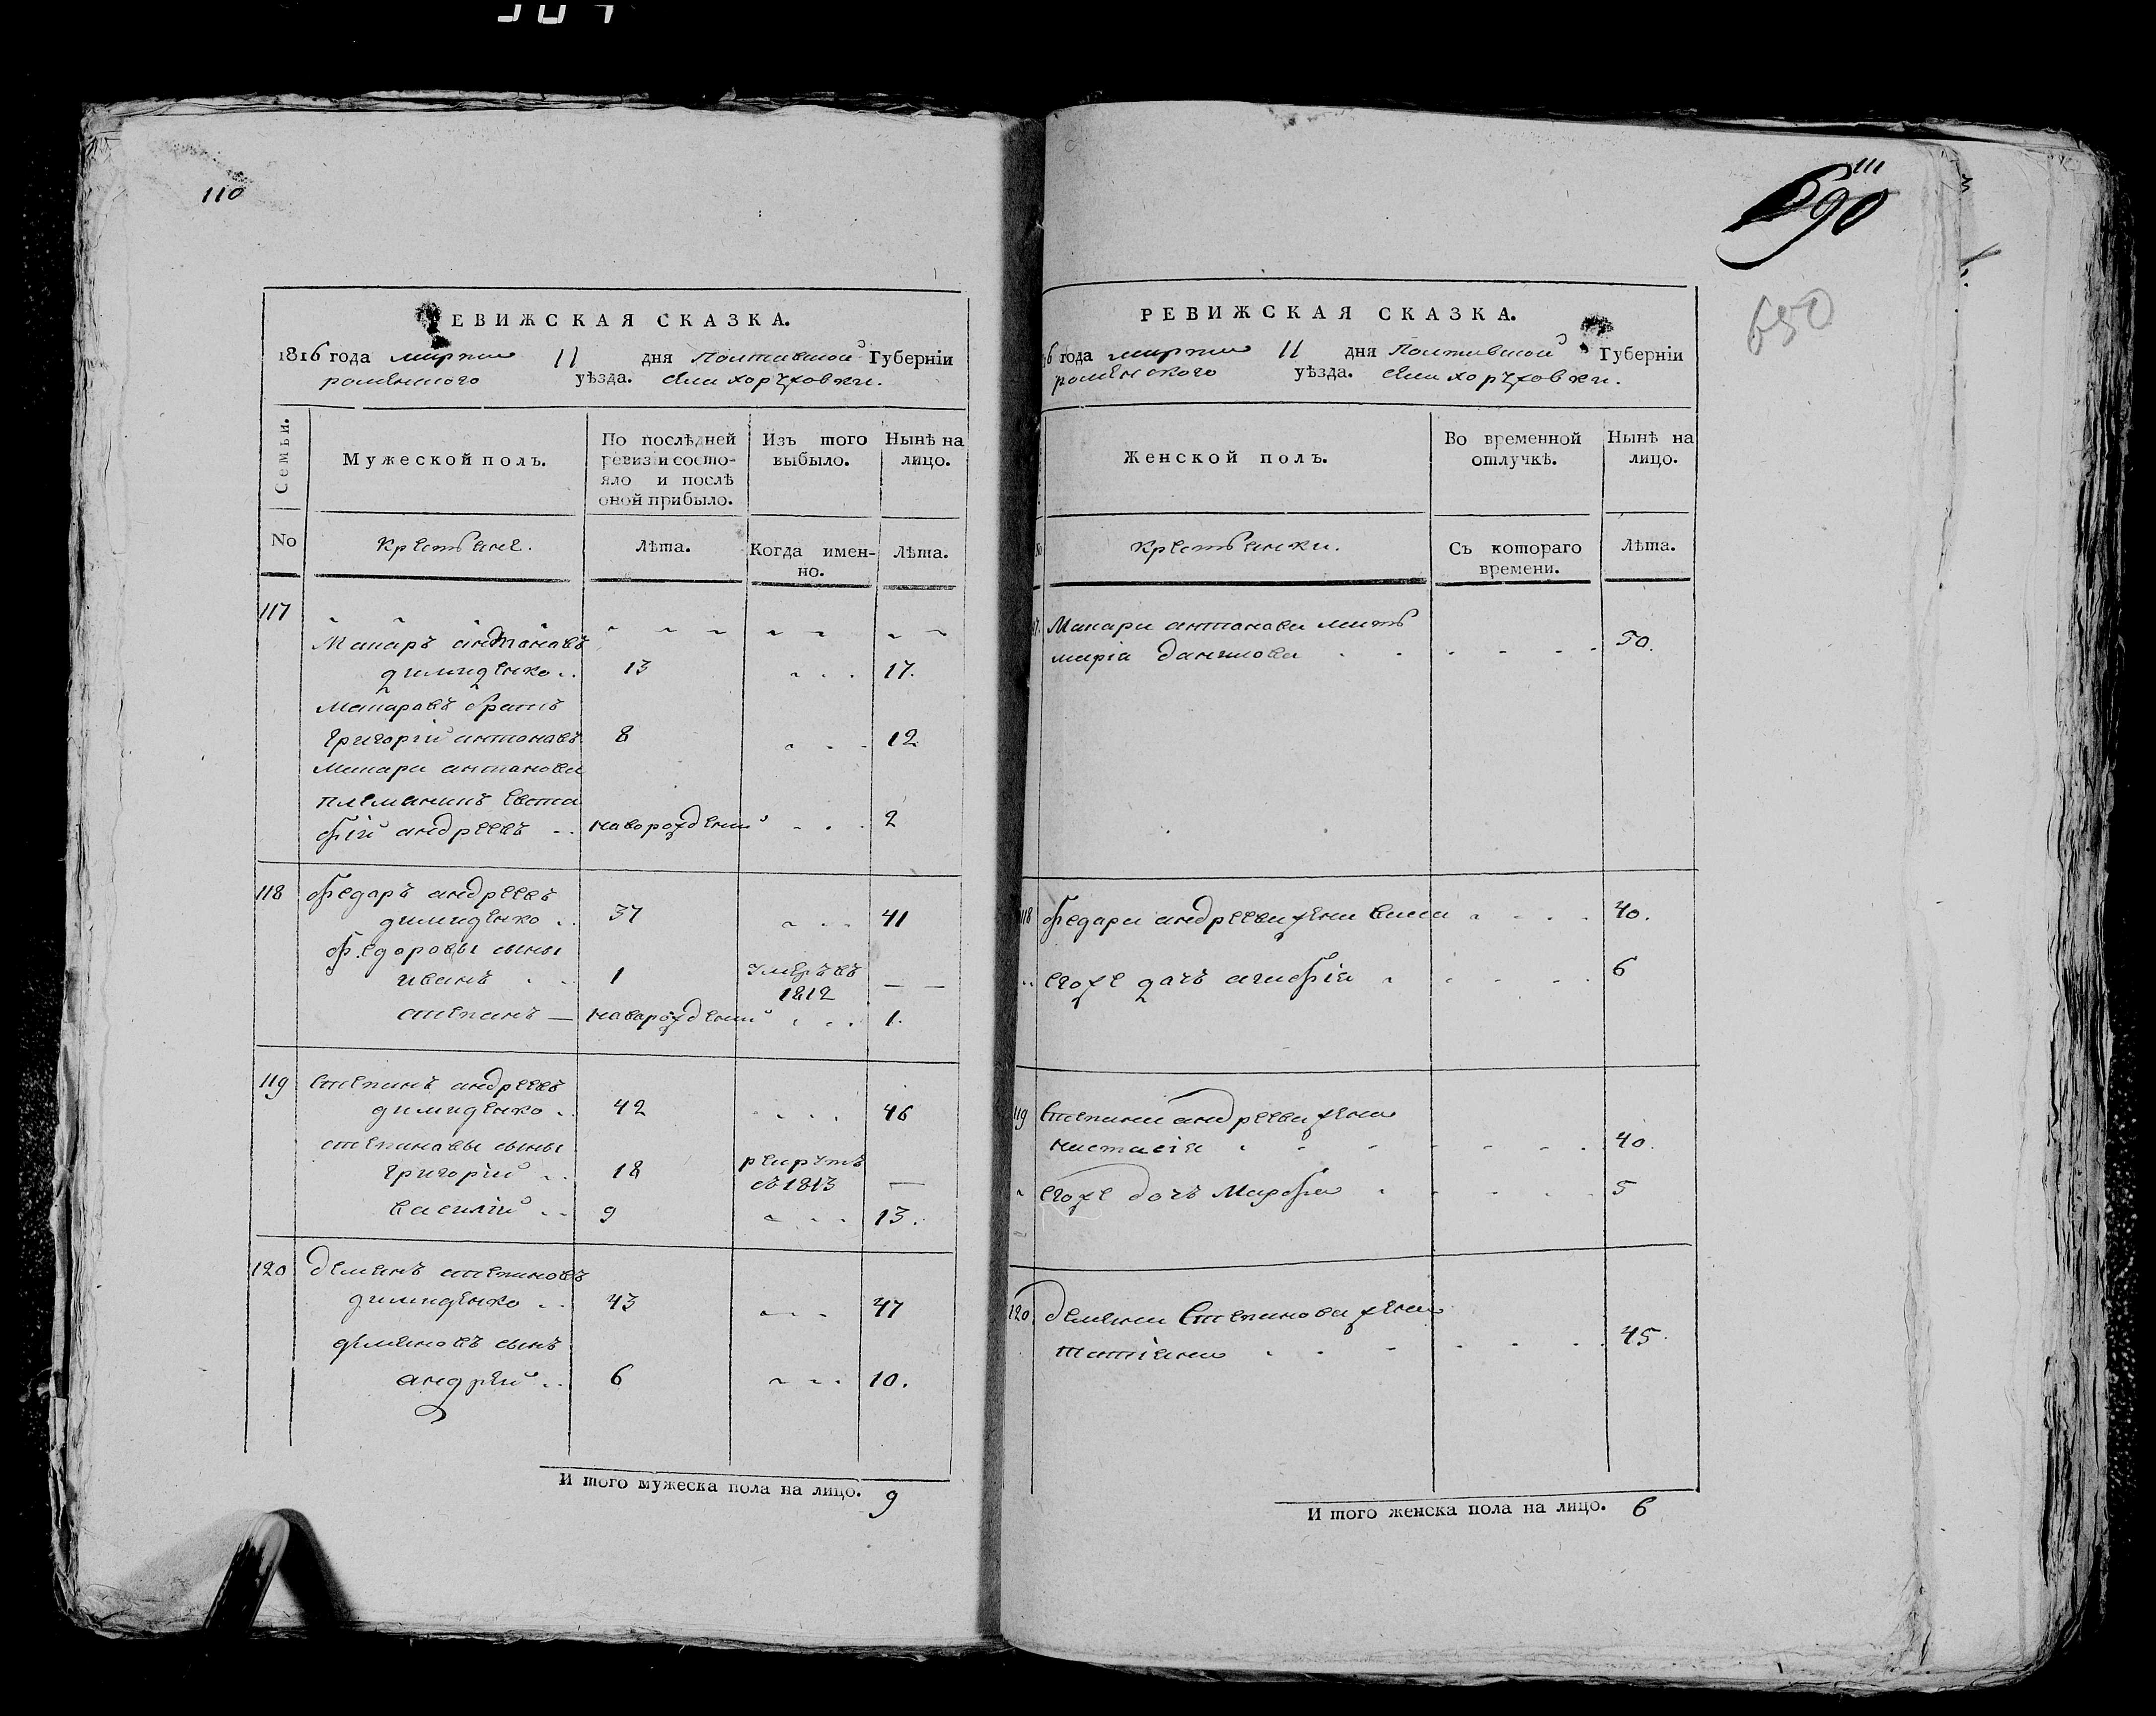 110
РЕВИЖСКАЯ СКАЗКА.
1816 года марта 11 дня Полтавской Губерніи
роменского уѣзда. села хоружовки.
Семьи.
Мужеской полъ.
По послѣдней
ревизіи состо-
яло и послѣ
оной прибыло.
Изъ того
выбыло.
Нынѣ на
лицо.
No
Крестьяне.
Лѣта.
Когда имен-
но.
Лѣта.
117
Макаръ антонавъ
димиденко 13 17.
Макаравъ братъ
Григорій антонавъ 8 12
Макара антонова
племянникъ Евста
фій андреевъ новорожденній 2
118 Федаръ андреевъ
димиденко 37 41
Федоровы сыны
иванъ 1 умеръ въ
1812 — —
степанъ — новарожденній 1.
119 Степанъ андреевъ
димиденко 42 46
степанавы сыны
Григорій 18 рекрутъ
съ 1813 —
Василій 9 13.
120 Демянъ степановъ
димиденко 43 47
демяновъ сынъ
андрей 6 10.
И того мужеска пола на лицо. 9
111
690
650
РЕВИЖСКАЯ СКАЗКА.
6 года марта 11 дня Полтавской Губерніи
роменского уѣзда. села хоружовки.
Женской полъ.
Во временной
отлучкѣ.
Нынѣ на
лицо.
Крестьянки.
Съ котораго
времени.
Лѣта.
Макара антонова мать
марія данилова 50.
118 Федара андреева жена 40.
егоже дачъ агафія 6
119 Степана андреева жена
настасія 40.
егоже дочъ Марфа 5
120 Демяна Степанова жена
татіяна 45.
И того женска пола на лицо. 6